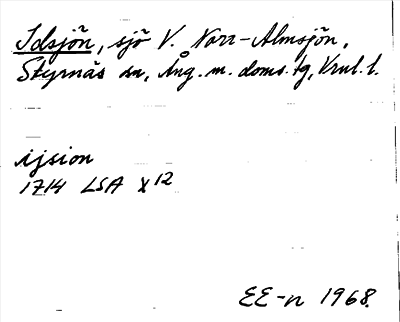 Idsjön, sjö V. Norr-Almsjön,
Styrnäs sn, Ång. m. doms. tg, Vnl. l.
ijsion
1714 LSA X 12
EE-n 1968.